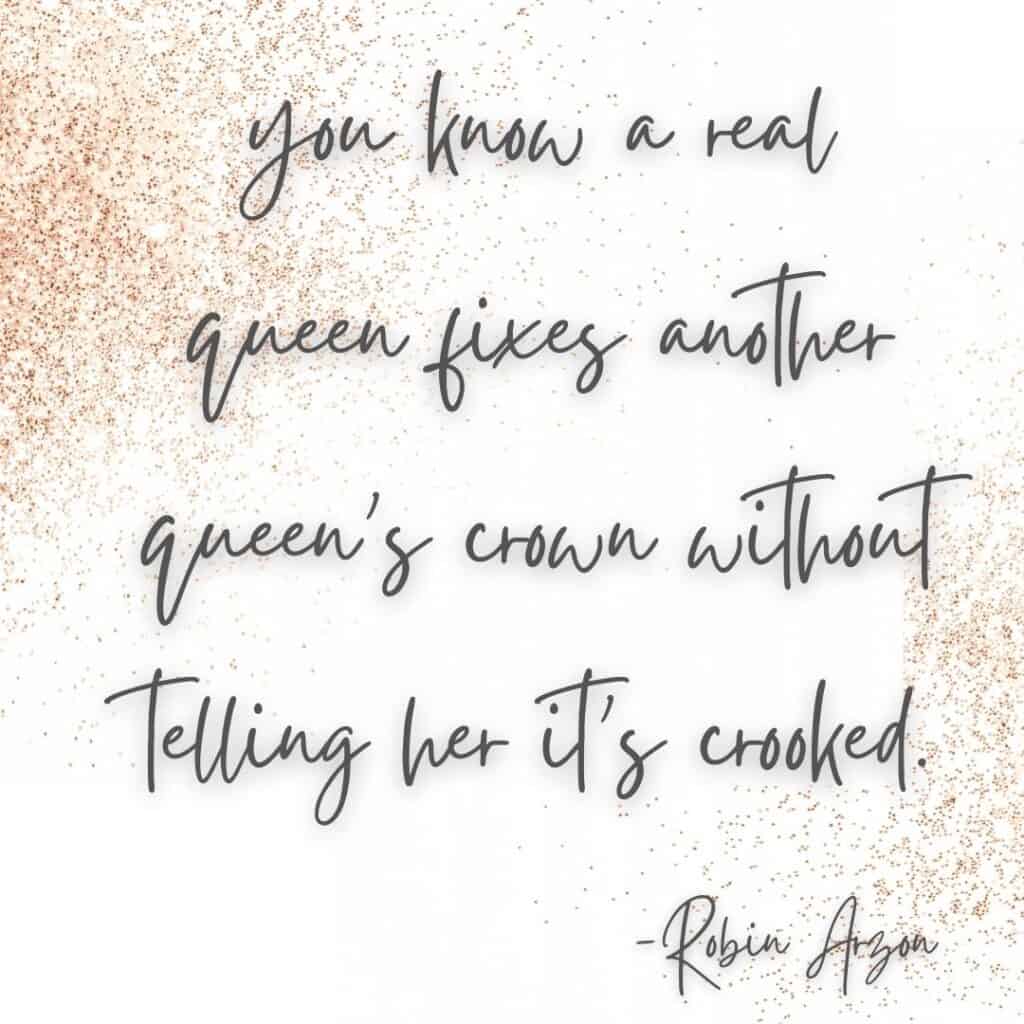 you know a real
queen fixes another
queen's crown without
telling her it's crooked.
-Robin Arzon